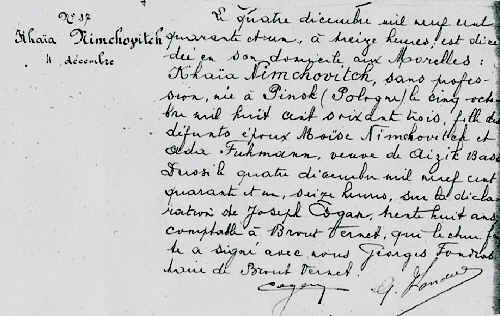 N° 37
Khaïa Nimchovitch
4 décembre
Le quatre décembre mil neuf cent
quarante et un, à treize heures, est décé
dée en son domicile aux Morelles :
Khaïa Nimchovitch, sans profes-
sion, née à Pinsk (Pologne) le cinq octo
bre mil huit cent soixante trois, fille des
défunts époux Moïse Nimchovitch et
Fuhmann, veuve de Aizik
Dressé le quatre décembre mil neuf cent
quarante et un, seize heures, sur la décla
ration de Joseph Cogan, trente huit ans
comptable à Brout Vernet, qui lecture fai
te a signé avec nous Georges
Maire de Brout Vernet.
Cogan